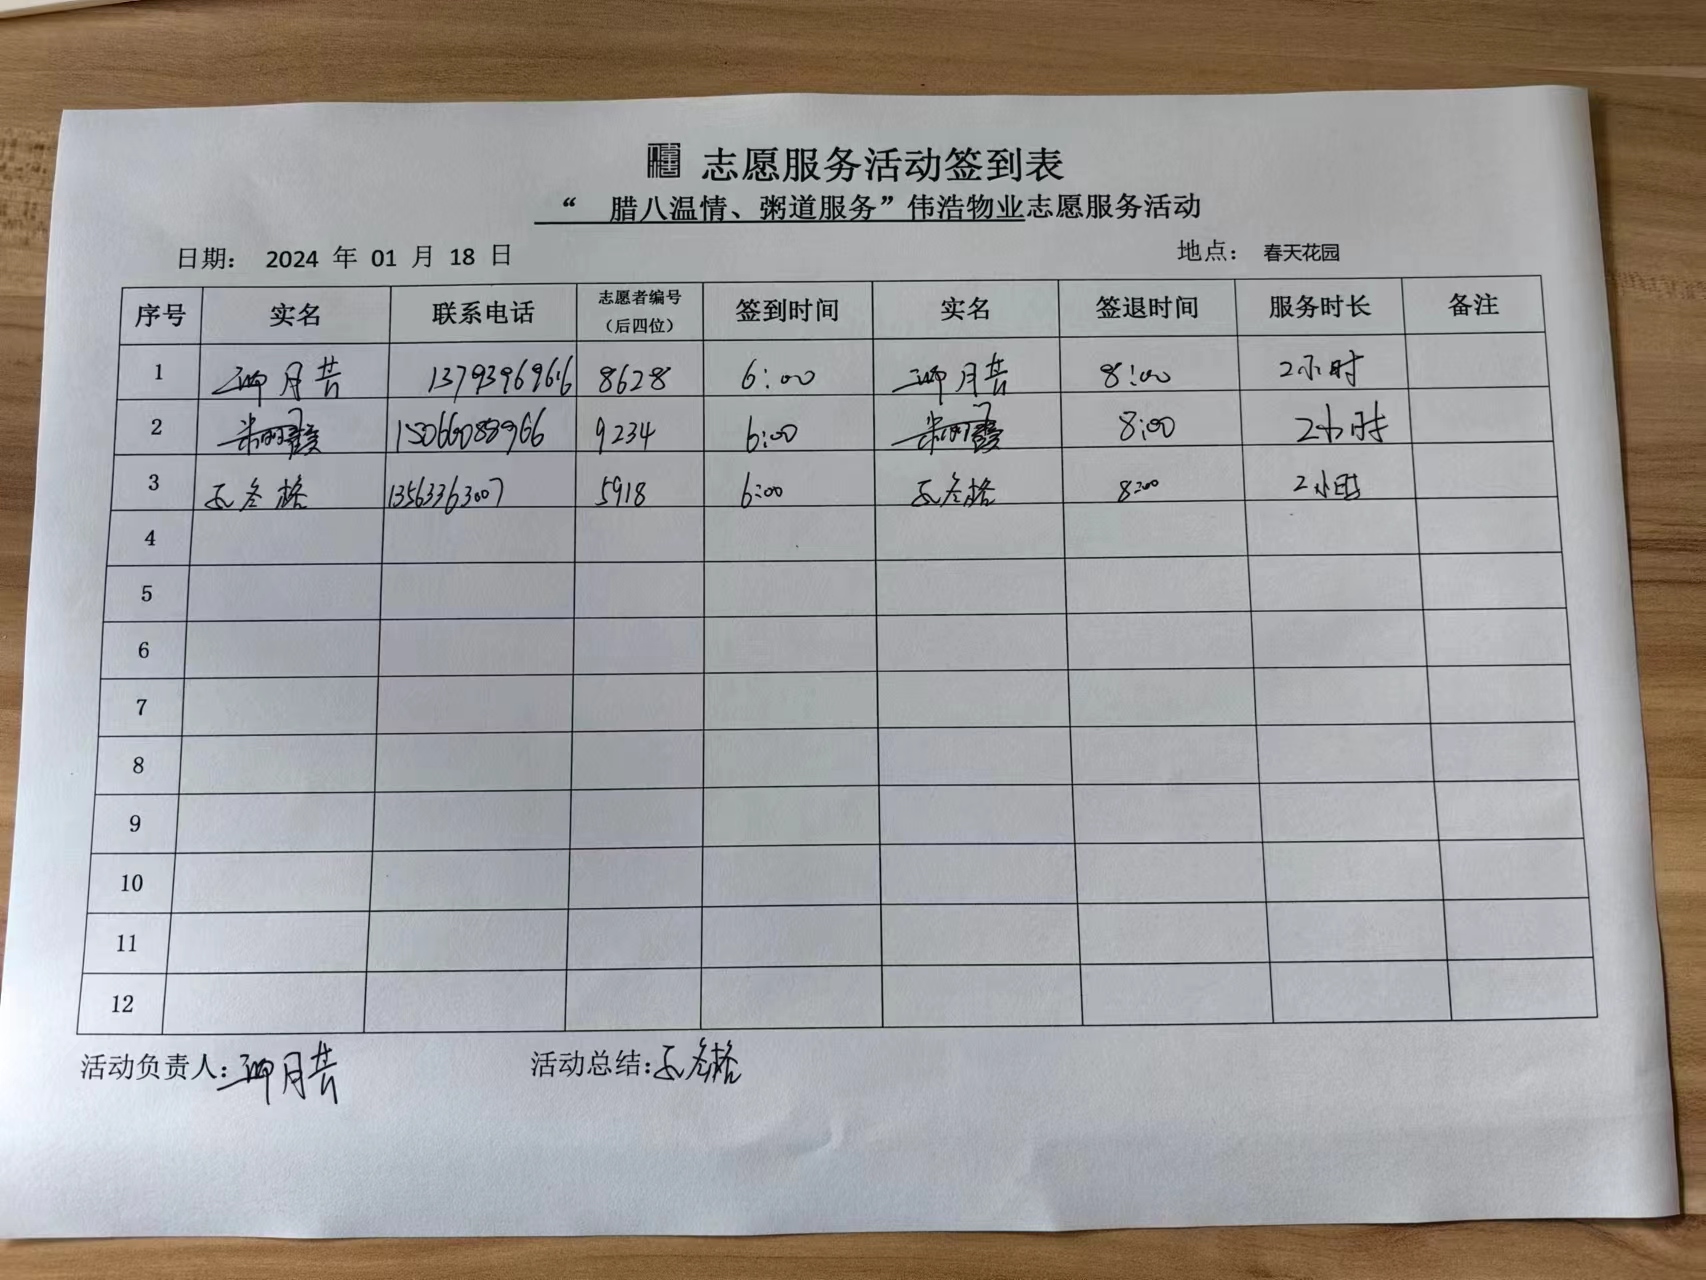 志愿服务活动签到表
“ 腊八温情、粥道服务”伟浩物业志愿服务活动
日期： 2024 年 01 月 18 日 地点： 春天花园
序号 实名 联系电话 志愿者编号（后四位） 签到时间 实名 签退时间 服务时长 备注
1 月芸 13793969616 8628 6:00 月芸 8:00 2小时
2 霞 15066088966 9234 6:00 霞 8:00 2小时
3 冬格 13563363007 5918 6:00 冬格 8:00 2小时
4
5
6
7
8
9
10
11
12
活动负责人: 月芸 活动总结: 冬格